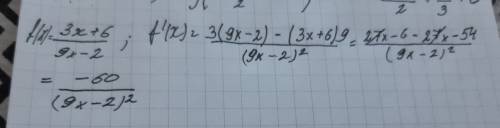 f(x)=\frac{3x+6}{9x-2}; f'(x)=\frac{3(9x-2)-(3x+6)9}{(9x-2)^2}=\frac{27x-6-27x-54}{(9x-2)^2}
=\frac{-60}{(9x-2)^2}